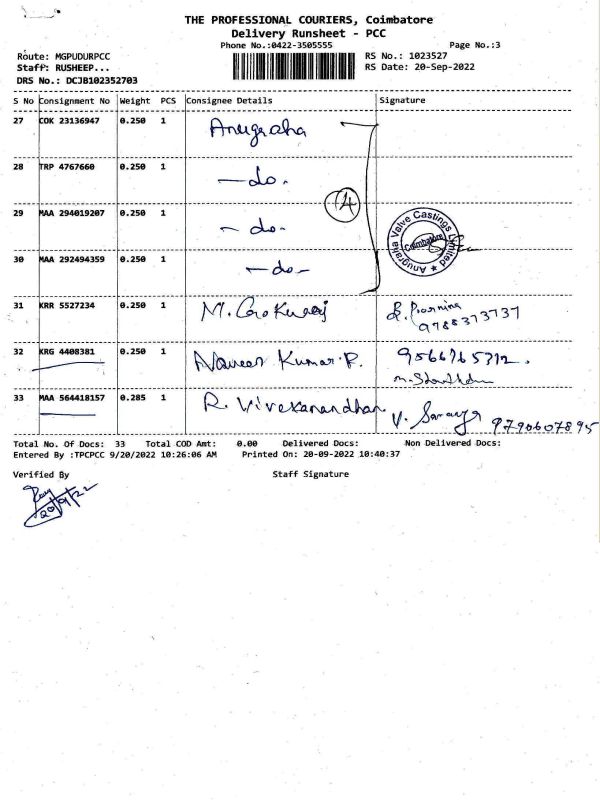 THE PROFESSIONAL COURIERS, Coimbatore
Delivery Runsheet - PCC
Phone No.:0422-3505555 Page No.:3
Route: MGPUDURPCC RS No.: 1023527
Staff: RUSHEEP... RS Date: 20-Sep-2022
DRS No.: DCJB102352703
S No Consignment No Weight PCS Consignee Details Signature
27 COK 23136947 0.250 1 Anugraha
28 TRP 4767660 0.250 1 -do-
29 MAA 294019207 0.250 1 -do-
4
Anugraha Valve Castings Limited
Coimbatore
30 MAA 292494359 0.250 1 -do-
31 KRR 5527234 0.250 1 M. Gokulraj
9788373737
32 KRG 4408381 0.250 1 Naveen Kumar.R.
33 MAA 564418157 0.285 1 R. Vivekanandhan V. Saranya 9790607895
Total No. Of Docs: 33 Total COD Amt: 0.00 Delivered Docs: Non Delivered Docs:
Entered By :TPCPCC 9/20/2022 10:26:06 AM Printed On: 20-09-2022 10:40:37
Verified By Staff Signature
20/9/22